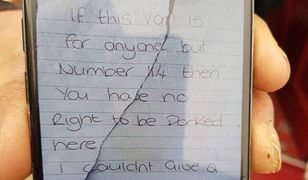 If this van is
for anyone but
Number 14 then
You have no
Right to be Parked
here
I couldnt Give a